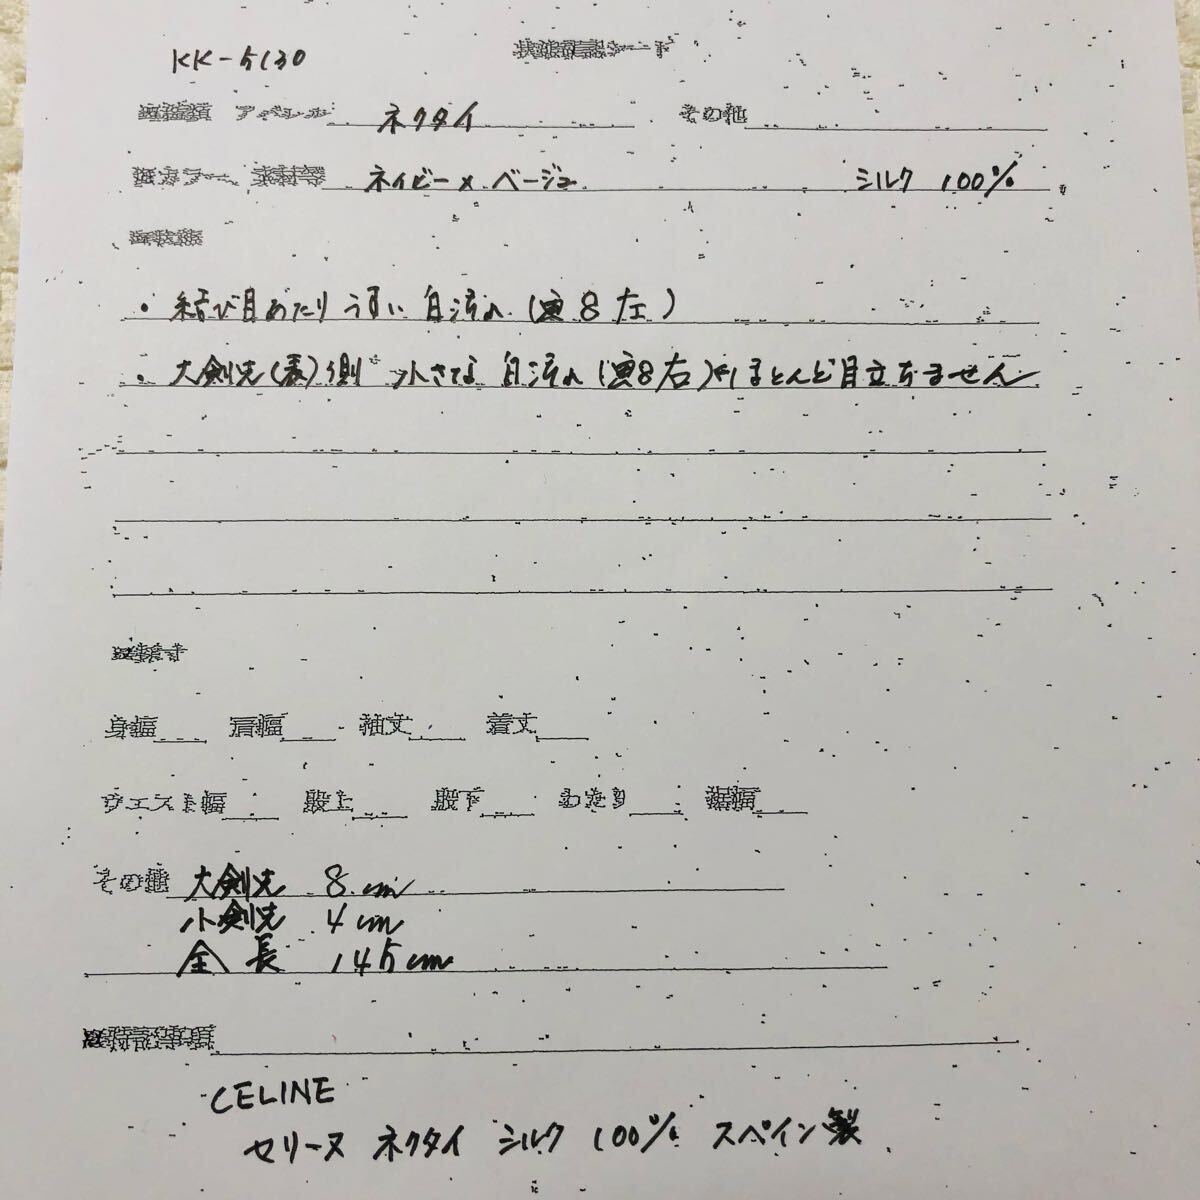 KK-5130
状態確認シート
アパレル ネクタイ その他
カラー、素材等 ネイビー×ベージュ シルク 100%
状態
・結び目あたり うすい 白汚れ (画8左)
・大剣先(表)側 小さな 白汚れ (画8右) ほとんど目立ちません
身幅 肩幅 袖丈 着丈
ウエスト幅 股上 股下 わたり 裾幅
その他 大剣先 8cm
小剣先 4cm
全長 145cm
特記事項
CELINE
セリーヌ ネクタイ シルク 100% スペイン製